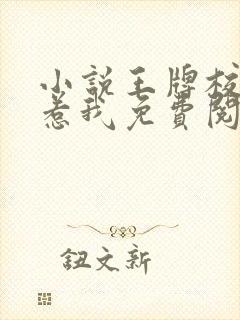 小说王牌校
惹我免費閱
鈕文新